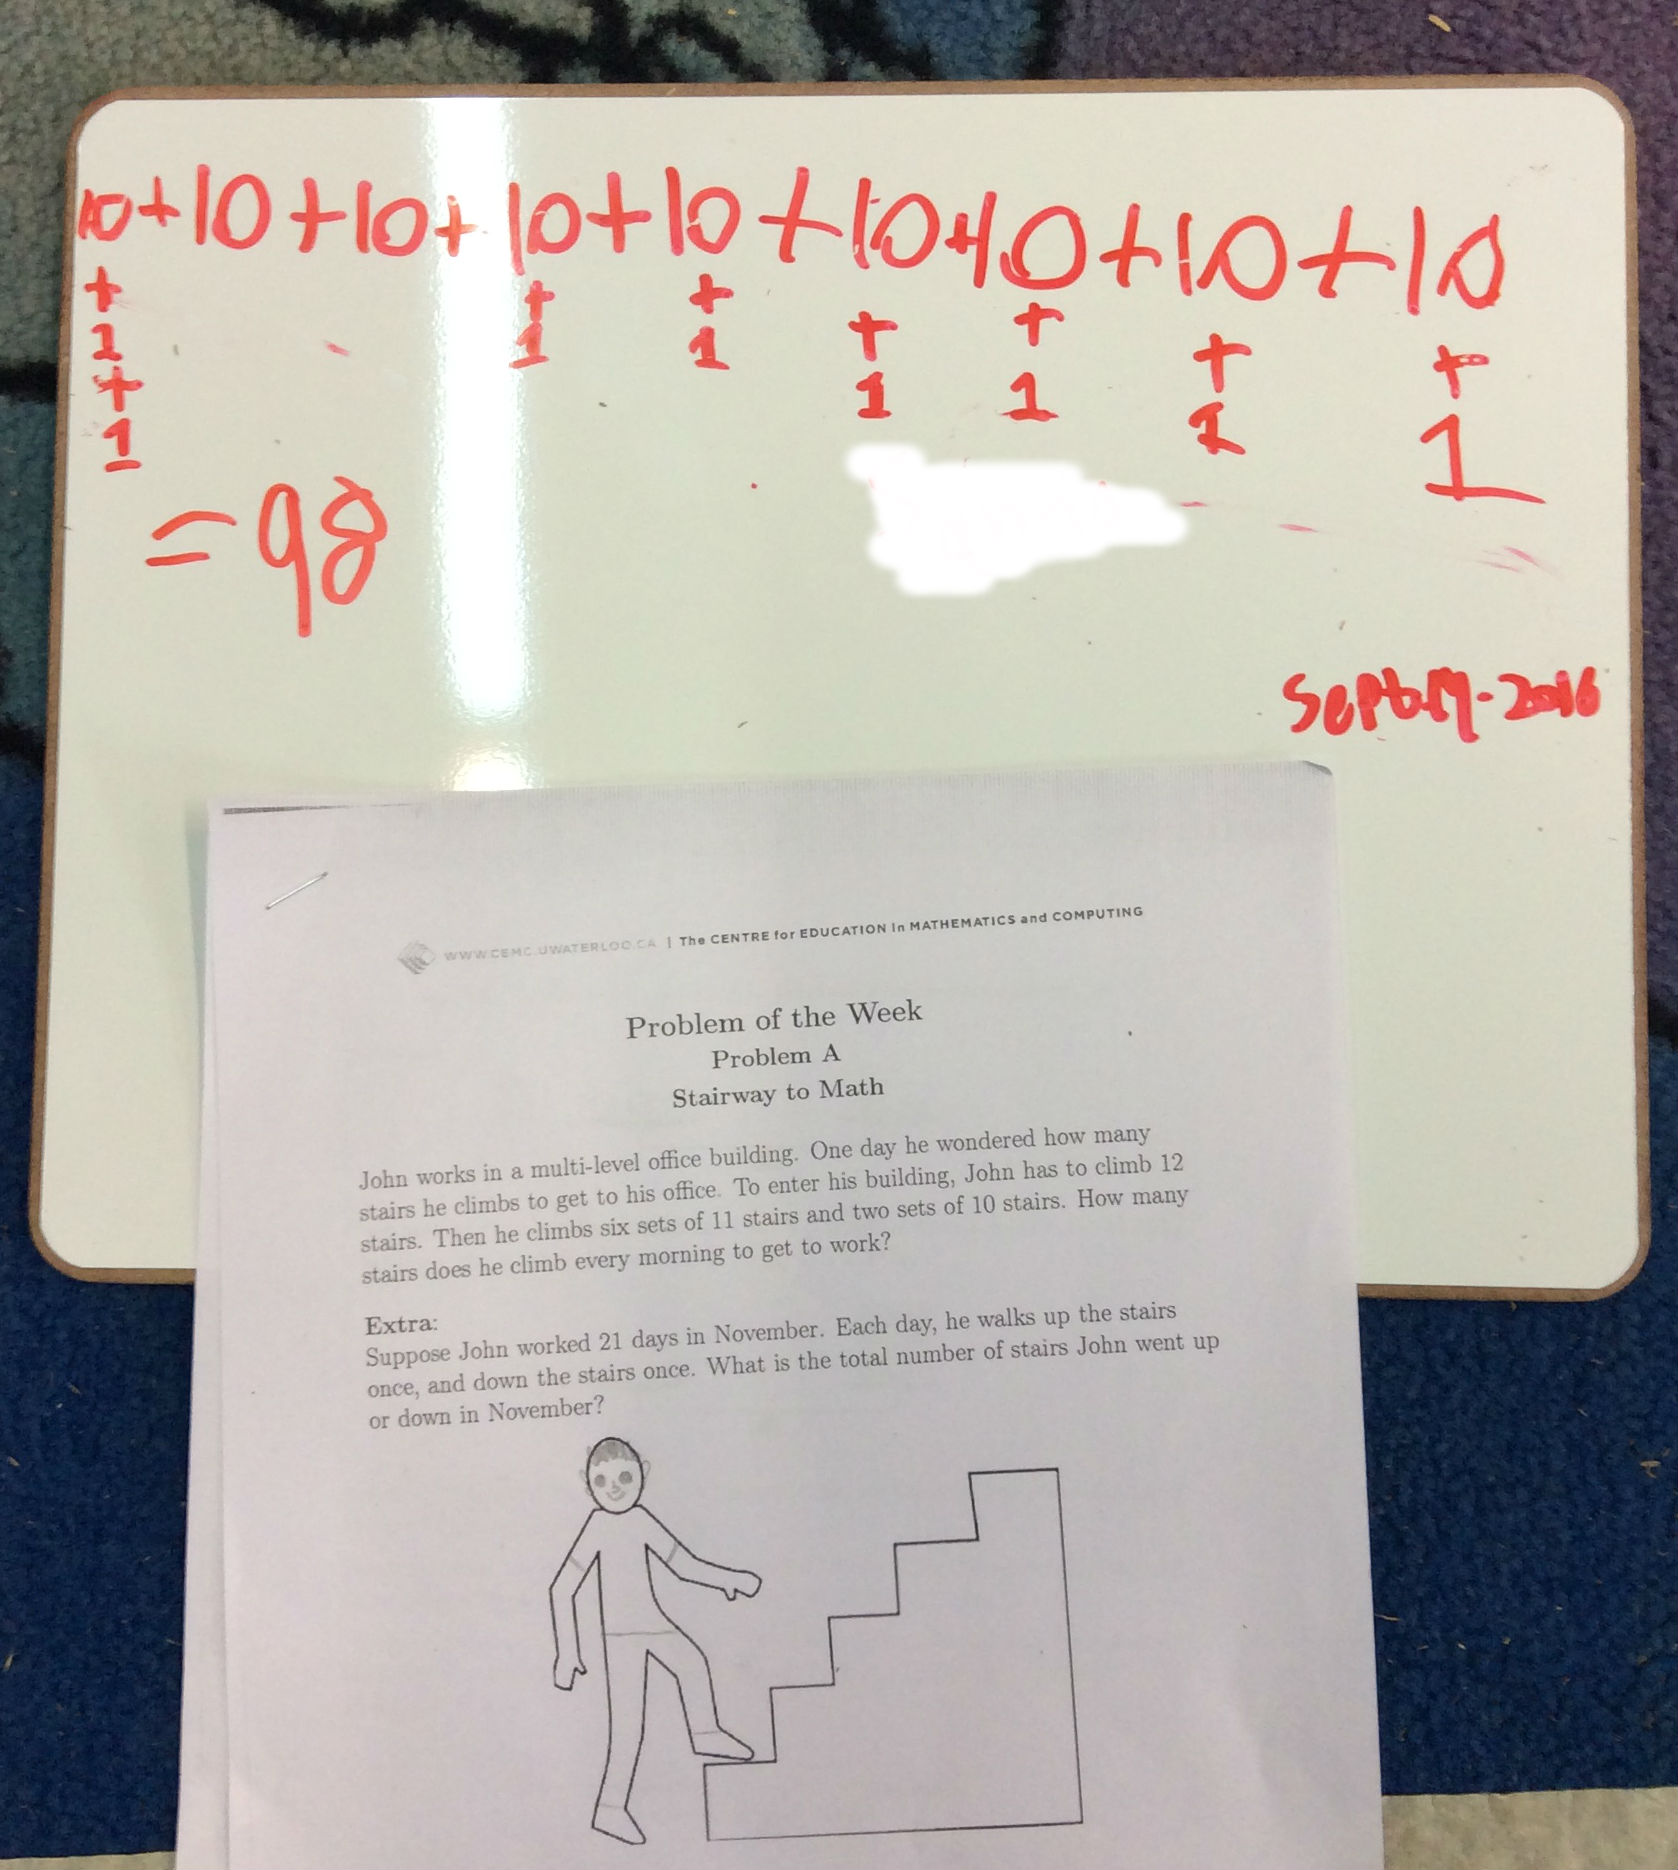 10+10+10+10+10+10+10+10+10
+ + + + + + +
1 1 1 1 1 1 1
+
1
=98
Sept.19-2016
WWW.CEMC.UWATERLOO.CA | The CENTRE for EDUCATION in MATHEMATICS and COMPUTING
Problem of the Week
Problem A
Stairway to Math
John works in a multi-level office building. One day he wondered how many
stairs he climbs to get to his office. To enter his building, John has to climb 12
stairs. Then he climbs six sets of 11 stairs and two sets of 10 stairs. How many
stairs does he climb every morning to get to work?
Extra:
Suppose John worked 21 days in November. Each day, he walks up the stairs
once, and down the stairs once. What is the total number of stairs John went up
or down in November?